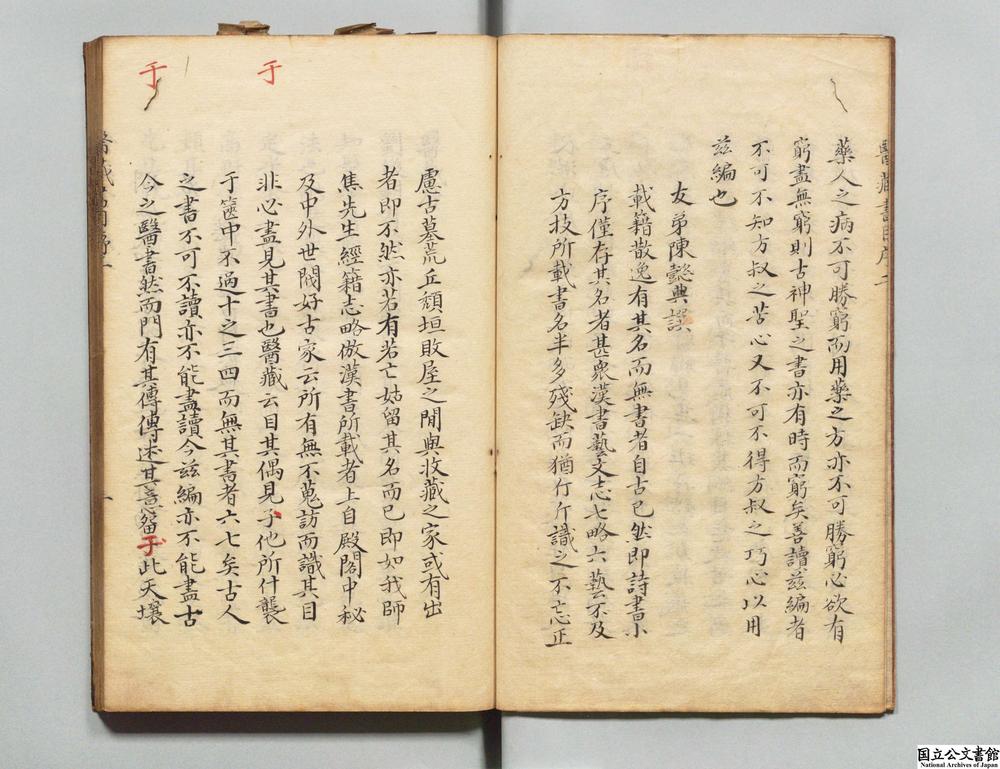 藥人之病不可勝窮而用藥之方亦不可勝窮心欲有
窮盡無窮則古神聖之書亦有時而窮矣善讀茲編者
不可不知方叔之苦心又不可不得方叔之巧心以用
茲編也
友弟陳懿典譔
載籍散逸有其名而無書者自古已然即詩書小
序僅存其名者甚衆漢書藝文志七略六藝不及
方技所載書名半多殘缺而猶斤斤識之不忘正
慮古墓荒丘頽垣敗屋之閒與收藏之家或有出
者即不然亦若有若亡姑留其名而已即如我師
焦先生經籍志略倣漢書所載者上自殿閣中秘
及中外世閥好古家云所有無不蒐訪而識其目
非必盡見其書也醫藏云目其偶見于他所什襲
于篋中不過十之三四而無其書者六七矣古人
之書不可不讀亦不能盡讀今茲編亦不能盡古
今之醫書然而門有其傳傳述其意留于此天壤
于
于
醫藏書目序
国立公文書館
National Archives of Japan